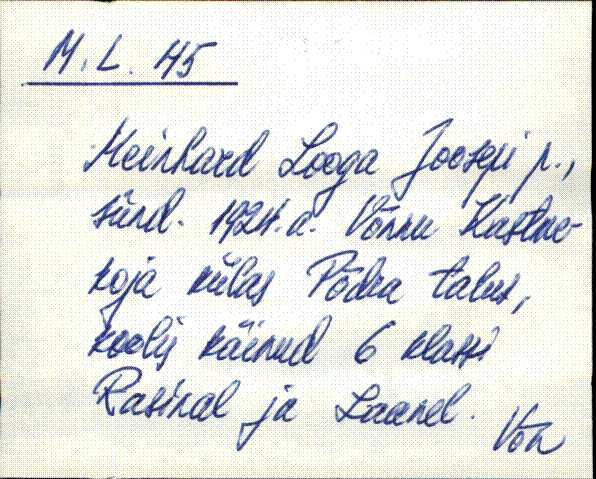 M. L. 45
Meinhard Looga Joosepi p.,
sünd. 1924. a. Võnnu Kastme-
koja külas Põdra talus,
koolis käinud 6 klassi
Rasinal ja Laanel.
Võn